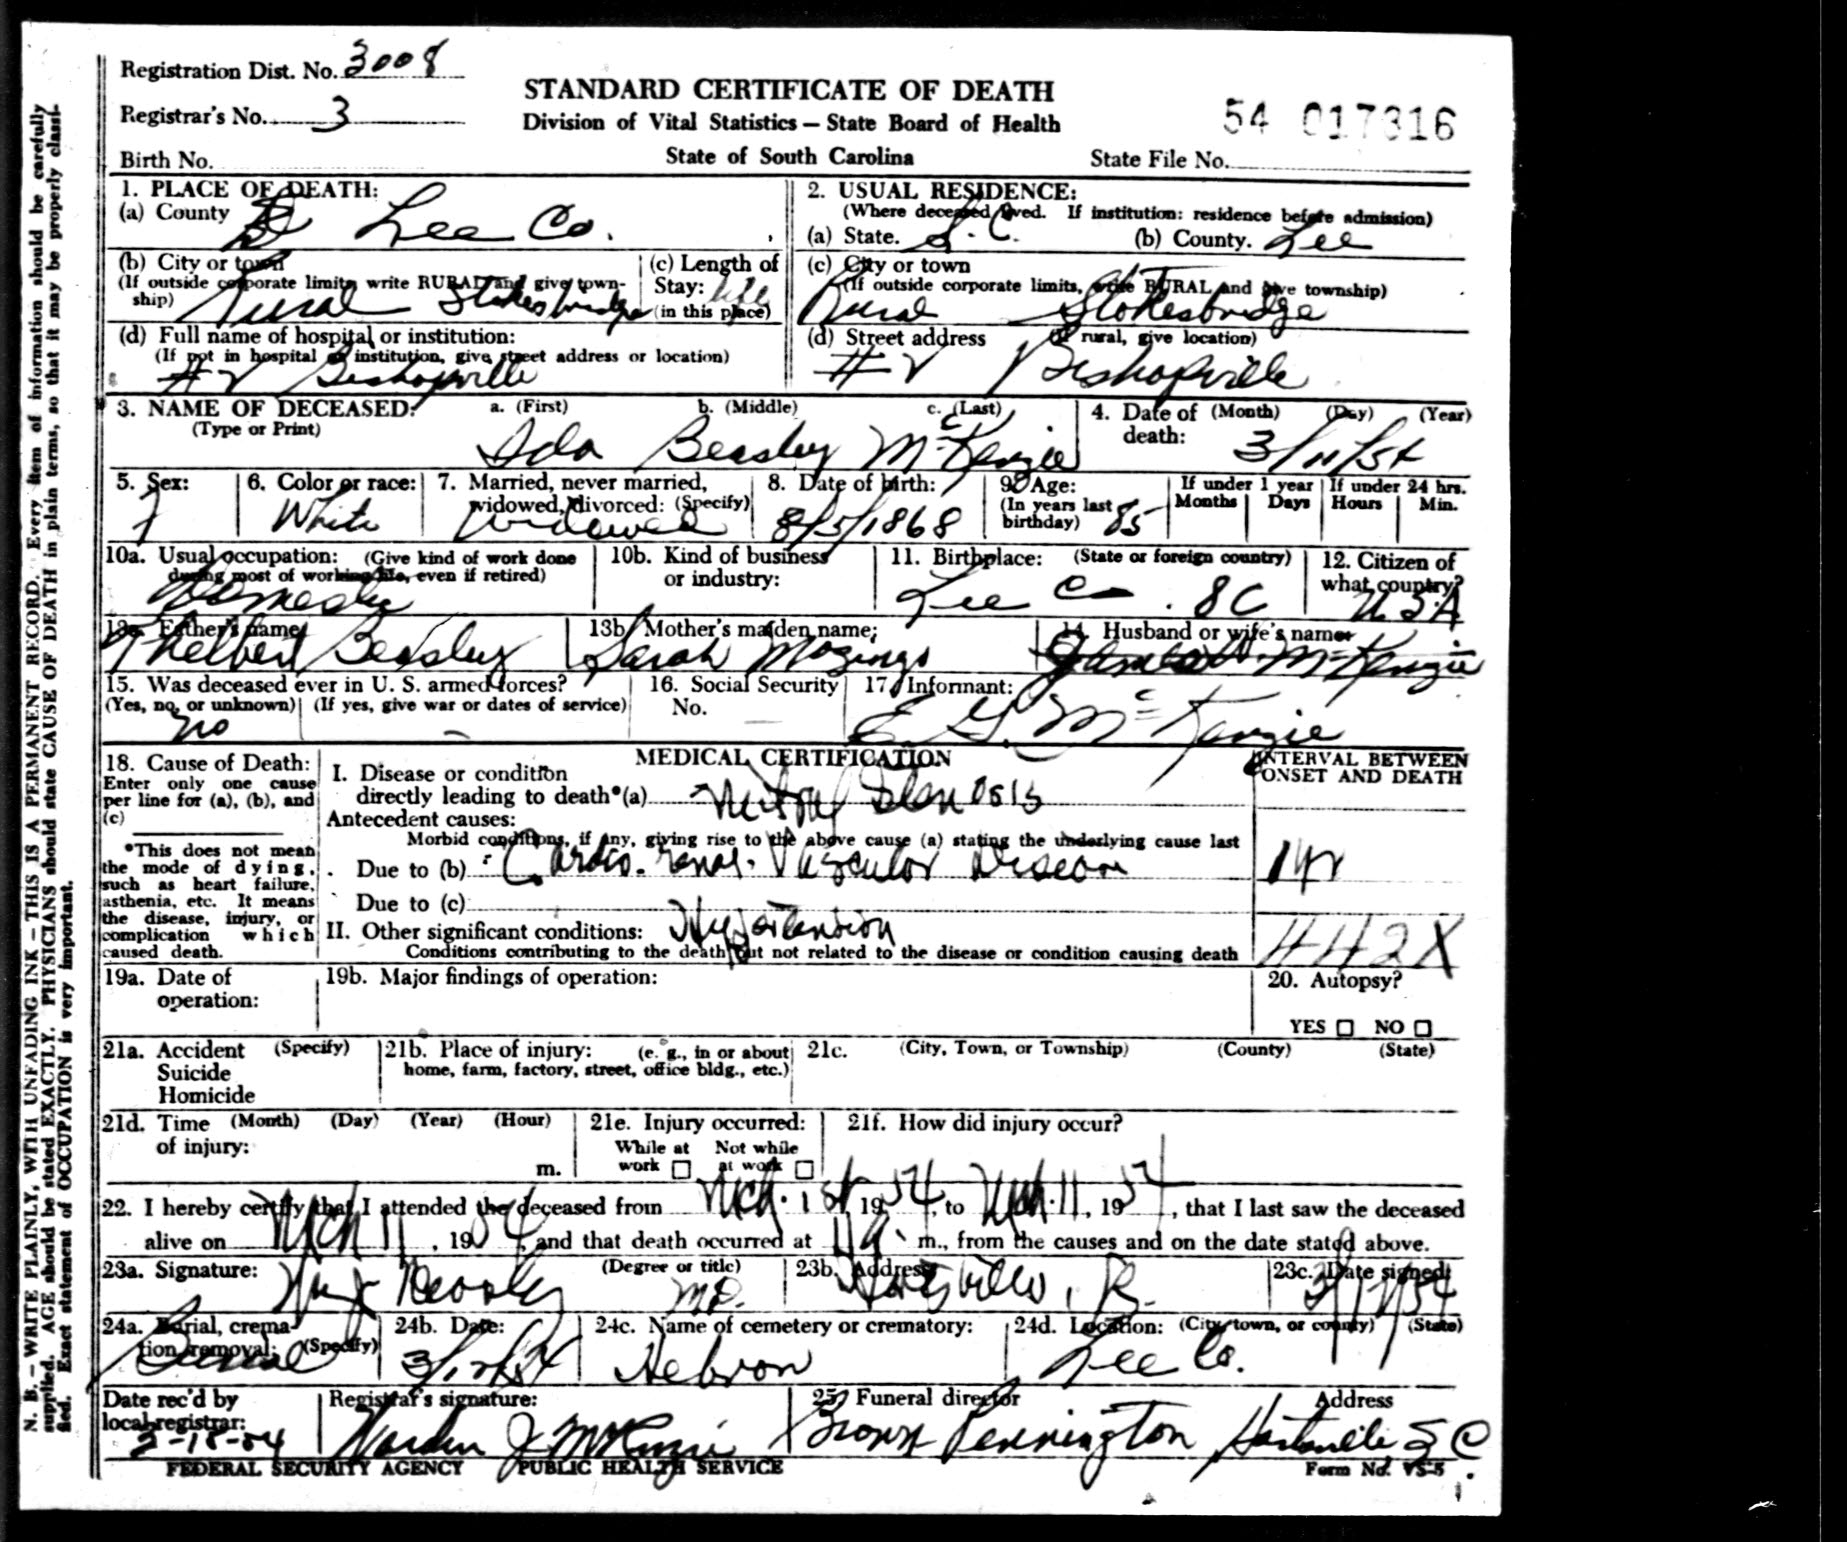 Registration Dist. No. 3008
Registrar's No. 3
Birth No.
STANDARD CERTIFICATE OF DEATH
Division of Vital Statistics – State Board of Health
State of South Carolina
54 017316
State File No.
N. B. – WRITE PLAINLY, WITH UNFADING INK – THIS IS A PERMANENT RECORD. Every item of information should be carefully
supplied. AGE should be stated EXACTLY. PHYSICIANS should state CAUSE OF DEATH in plain terms, so that it may be properly classi-
fied. Exact statement of OCCUPATION is very important.
1. PLACE OF DEATH:
(a) County Lee Co.
(b) City or town
(If outside corporate limits, write RURAL and give town-
ship) Rural Stokesbridge
(c) Length of
Stay: life
(in this place)
(d) Full name of hospital or institution:
(If not in hospital or institution, give street address or location)
#2 Bishopville
2. USUAL RESIDENCE:
(Where deceased lived. If institution: residence before admission)
(a) State. S.C. (b) County. Lee
(c) City or town
(If outside corporate limits, write RURAL and give township)
Rural Stokesbridge
(d) Street address (If rural, give location)
#2 Bishopville
3. NAME OF DECEASED: a. (First) b. (Middle) c. (Last)
(Type or Print) Ida Beasley McKenzie
4. Date of (Month) (Day) (Year)
death: 3/11/54
5. Sex: F
6. Color or race: White
7. Married, never married,
widowed, divorced: (Specify)
Widowed
8. Date of birth:
8/5/1868
9. Age:
(In years last
birthday) 85
If under 1 year
Months Days
If under 24 hrs.
Hours Min.
10a. Usual occupation: (Give kind of work done
during most of working life, even if retired)
Domestic
10b. Kind of business
or industry:
11. Birthplace: (State or foreign country)
Lee Co. SC
12. Citizen of
what country?
U.S.A
13a. Father's name
Thelbert Beasley
13b. Mother's maiden name:
Sarah Mozingo
14. Husband or wife's name
James W. McKenzie
15. Was deceased ever in U. S. armed forces?
(Yes, no, or unknown) (If yes, give war or dates of service)
no –
16. Social Security
No. —
17. Informant:
E. G. McKenzie
18. Cause of Death:
Enter only one cause
per line for (a), (b), and
(c)
*This does not mean
the mode of dying,
such as heart failure,
asthenia, etc. It means
the disease, injury, or
complication which
caused death.
MEDICAL CERTIFICATION
INTERVAL BETWEEN
ONSET AND DEATH
I. Disease or condition
directly leading to death*(a) Mitral Stenosis
Antecedent causes:
Morbid conditions, if any, giving rise to the above cause (a) stating the underlying cause last
Due to (b) Cardio-renal-Vascular Disease 1 yr
Due to (c)
II. Other significant conditions: Hypertension
Conditions contributing to the death but not related to the disease or condition causing death
442X
19a. Date of
operation:
19b. Major findings of operation:
20. Autopsy?
YES □ NO □
21a. Accident (Specify)
Suicide
Homicide
21b. Place of injury: (e. g., in or about
home, farm, factory, street, office bldg., etc.)
21c. (City, Town, or Township) (County) (State)
21d. Time (Month) (Day) (Year) (Hour)
of injury: m.
21e. Injury occurred:
While at Not while
work □ at work □
21f. How did injury occur?
22. I hereby certify that I attended the deceased from Mch. 1st, 1954, to Mch. 11, 1954, that I last saw the deceased
alive on Mch 11, 1954, and that death occurred at m., from the causes and on the date stated above.
23a. Signature: Beasley (Degree or title) MD.
23b. Address
23c. Date signed:
24a. Burial, crema-
tion, removal: (Specify)
Burial
24b. Date:
3/12/54
24c. Name of cemetery or crematory:
Hebron
24d. Location: (City, town, or county) (State)
Lee Co.
Date rec'd by
local registrar:
Registrar's signature:
25. Funeral director Address
Brown Pennington Hartsville S C.
FEDERAL SECURITY AGENCY PUBLIC HEALTH SERVICE Form No. VS-5